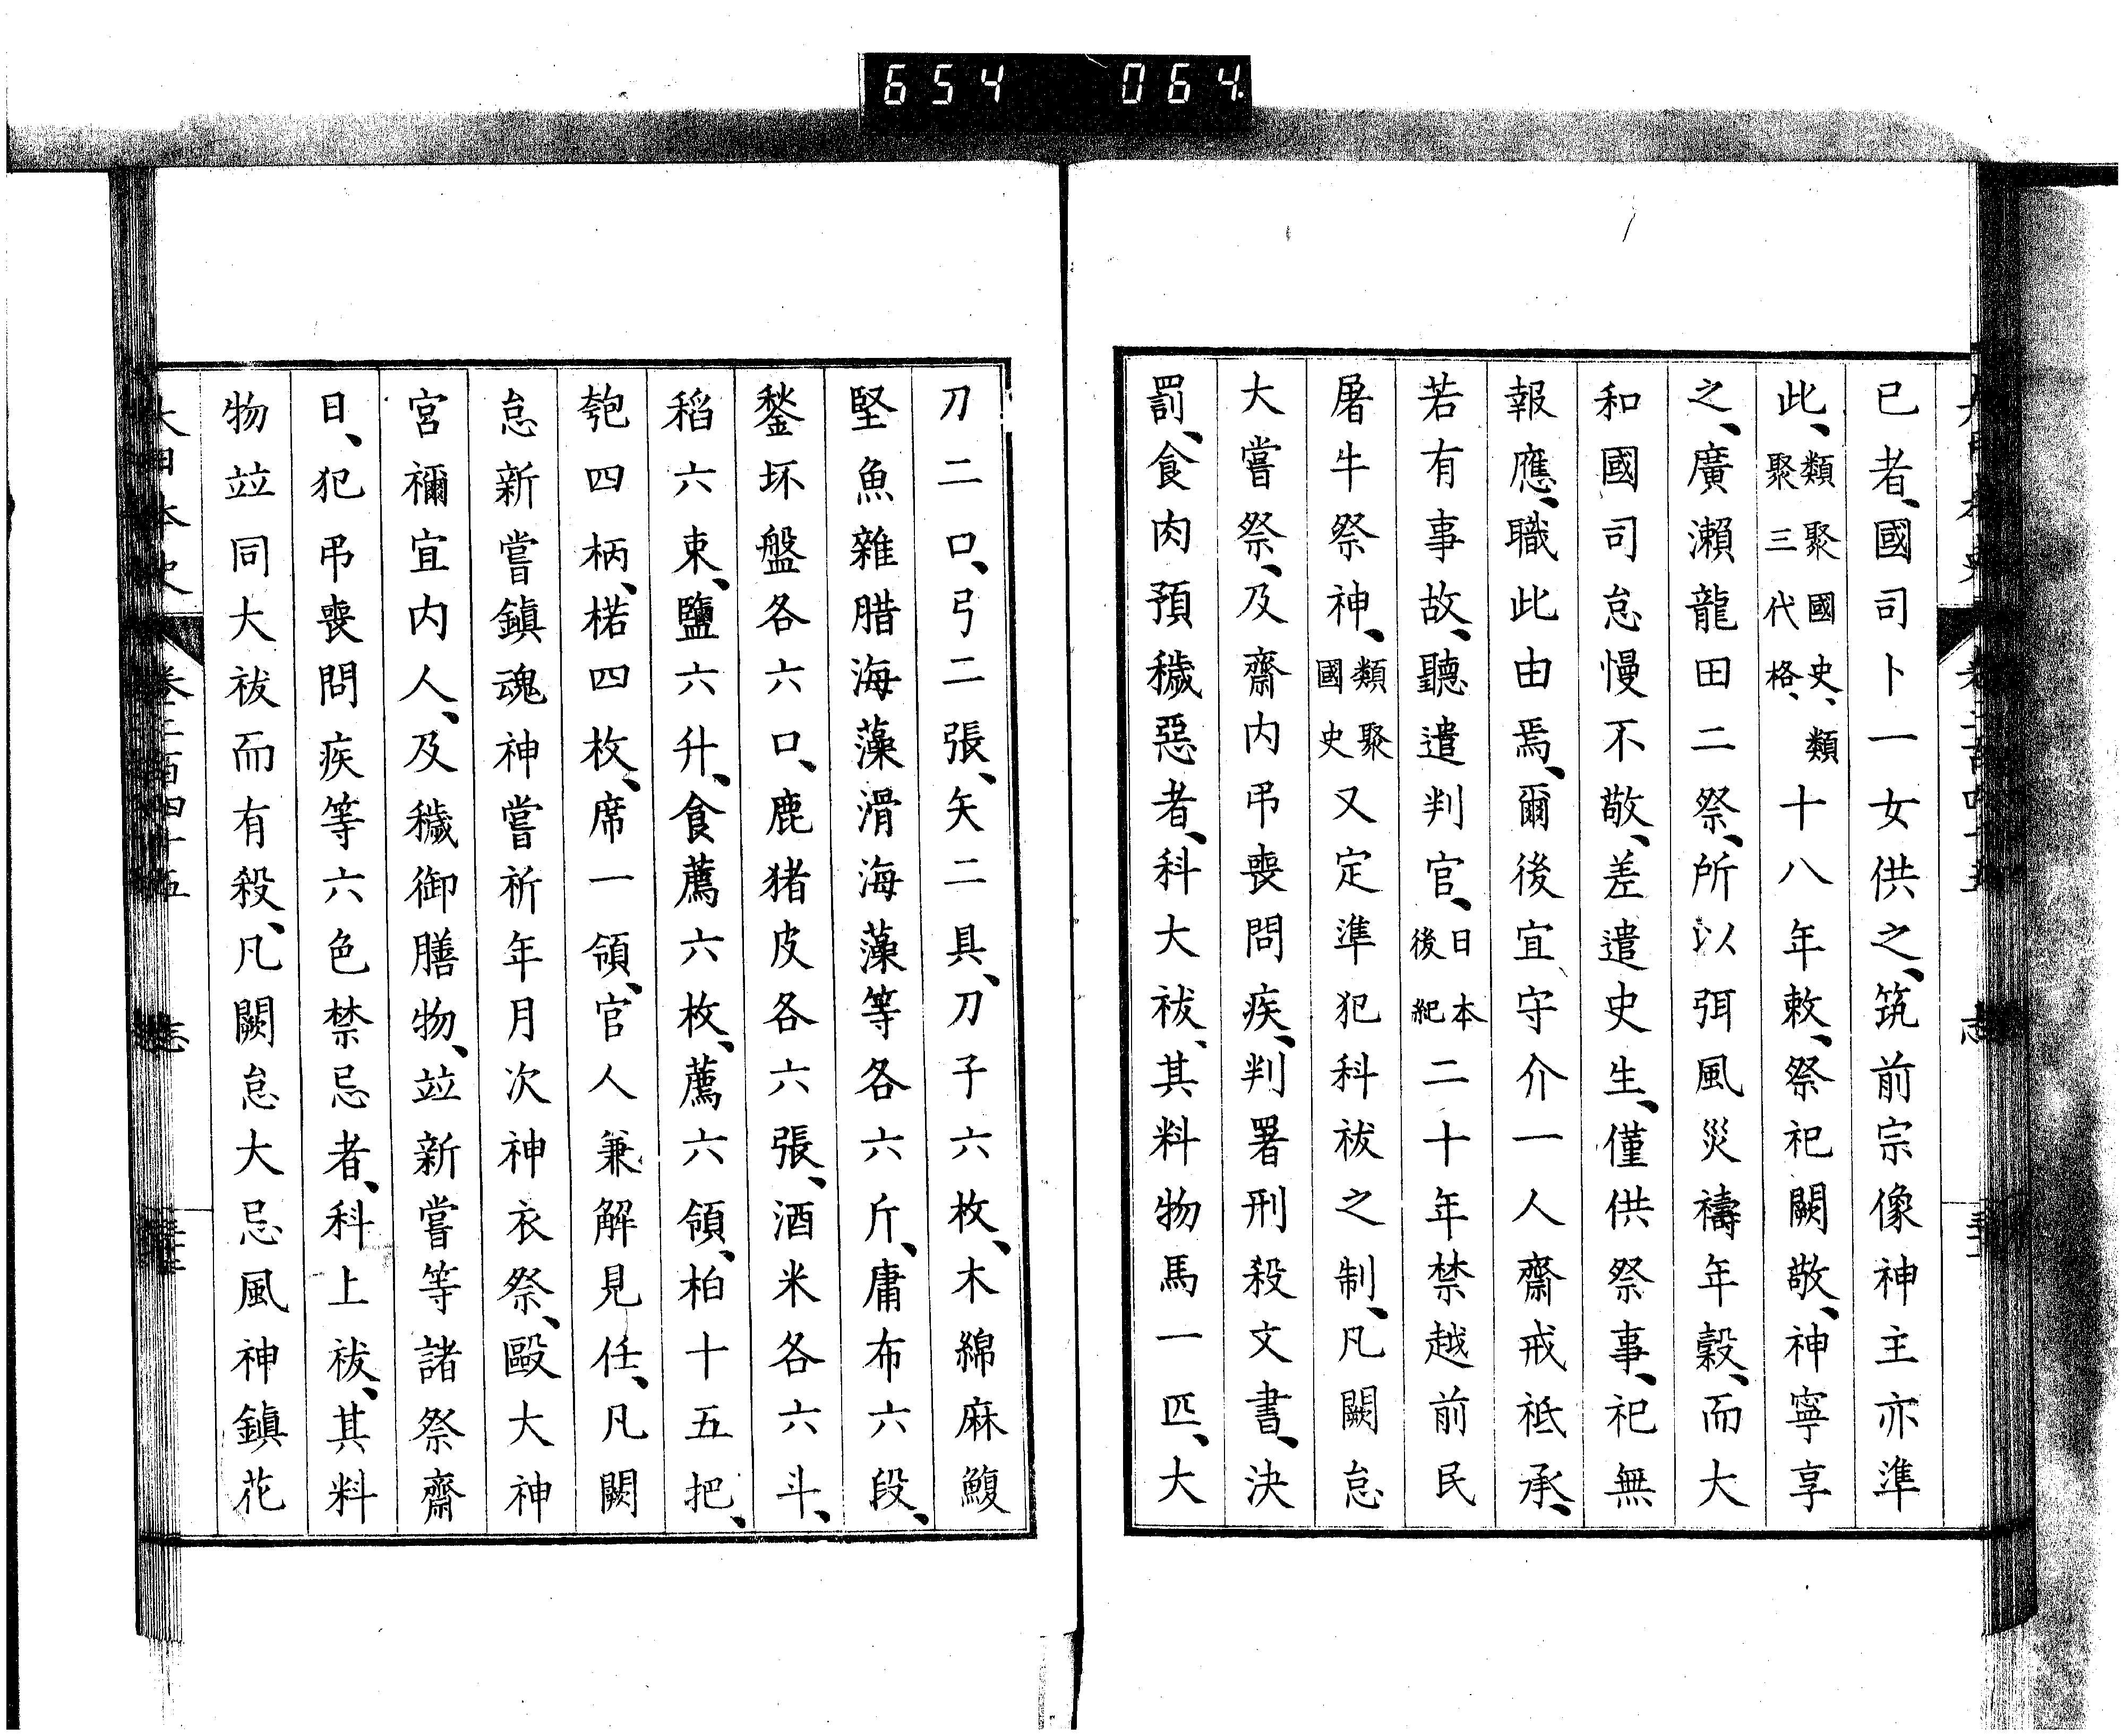 654 064
已者、國司卜一女供之、筑前宗像神主亦準
此、類聚國史、類聚三代格、十八年敕、祭祀闕敬、神寧享
之、廣瀨龍田二祭、所以弭風災禱年穀、而大
和國司怠慢不敬、差遣史生、僅供祭事、祀無
報應、職此由焉、爾後宜守介一人齋戒祗承、
若有事故、聽遣判官、日本後紀二十年禁越前民
屠牛祭神、類聚國史又定準犯科祓之制、凡闕怠
大嘗祭、及齋內弔喪問疾、判署刑殺文書、決
罰、食肉預穢惡者、科大祓、其料物馬一匹、大
刀二口、弓二張、矢二具、刀子六枚、木綿麻鰒
堅魚雜腊海藻滑海藻等各六斤、庸布六段、
鍫坏盤各六口、鹿猪皮各六張、酒米各六斗、
稻六束、鹽六升、食薦六枚、薦六領、柏十五把、
匏四柄、楉四枚、席一領、官人兼解見任、凡闕
怠新嘗鎮魂神嘗祈年月次神衣祭、毆大神
宮禰宜內人、及穢御膳物、竝新嘗等諸祭齋
日、犯弔喪問疾等六色禁忌者、科上祓、其料
物竝同大祓而有殺、凡闕怠大忌風神鎮花
大日本史 卷二百四十五 志